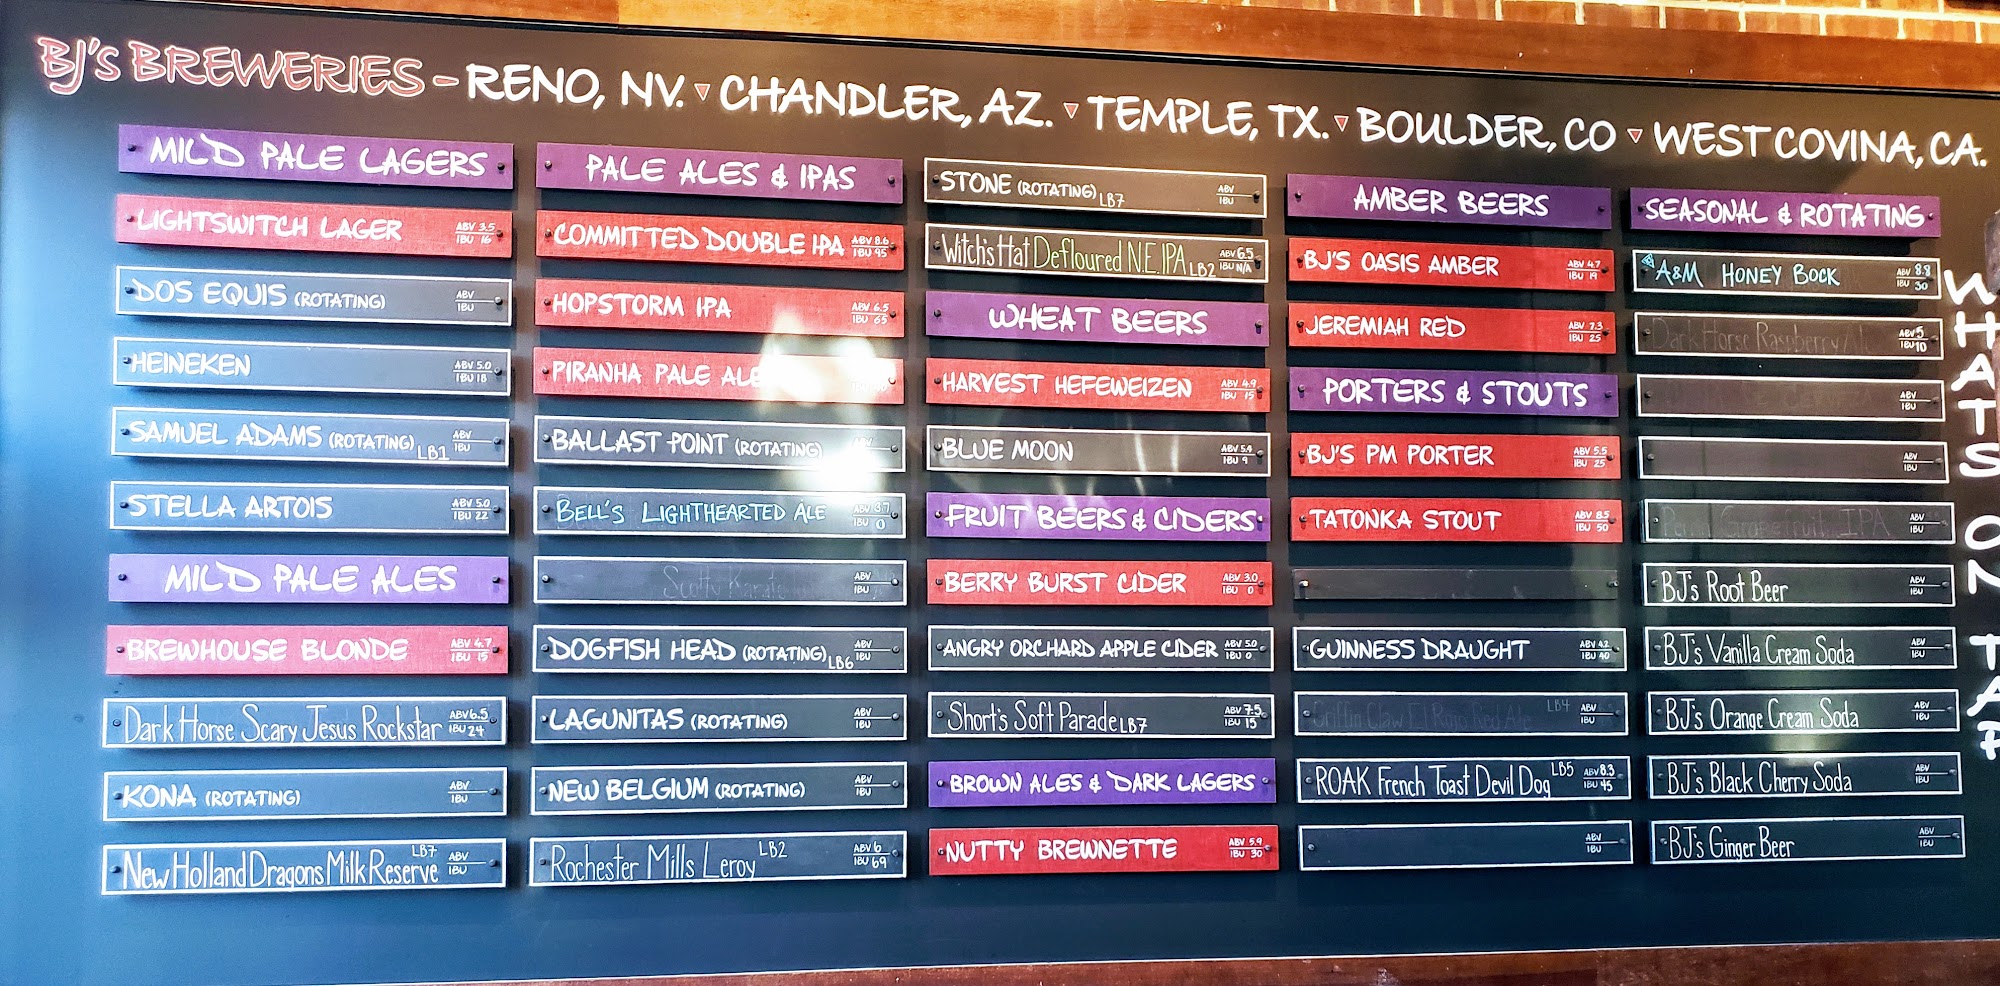 BJ's BREWERIES - RENO, NV. ▼ CHANDLER, AZ. ▼ TEMPLE, TX. ▼ BOULDER, CO ▼ WEST COVINA, CA.
MILD PALE LAGERS
LIGHTSWITCH LAGER ABV 3.5 IBU 16
DOS EQUIS (ROTATING) ABV IBU
HEINEKEN ABV 5.0 IBU 18
SAMUEL ADAMS (ROTATING) LB1 ABV IBU
STELLA ARTOIS ABV 5.0 IBU 22
MILD PALE ALES
BREWHOUSE BLONDE ABV 4.7 IBU 15
Dark Horse Scary Jesus Rockstar ABV 6.5 IBU 24
KONA (ROTATING) ABV IBU
New Holland Dragons Milk Reserve LB7 ABV IBU
PALE ALES & IPAS
COMMITTED DOUBLE IPA ABV 8.6 IBU 95
HOPSTORM IPA ABV 6.5 IBU 65
PIRANHA PALE ALE
BALLAST POINT (ROTATING)
BELL'S LIGHTHEARTED ALE ABV 3.7 IBU 0
Scotty Karate ABV IBU
DOGFISH HEAD (ROTATING) LB6 ABV IBU
LAGUNITAS (ROTATING) ABV IBU
NEW BELGIUM (ROTATING) ABV IBU
Rochester Mills Leroy LB2 ABV 6 IBU 69
STONE (ROTATING) LB7 ABV IBU
Witch's Hat Defloured N.E. IPA LB2 ABV 6.5 IBU N/A
WHEAT BEERS
HARVEST HEFEWEIZEN ABV 4.9 IBU 15
BLUE MOON ABV 5.4 IBU 9
FRUIT BEERS & CIDERS
BERRY BURST CIDER ABV 3.0 IBU 0
ANGRY ORCHARD APPLE CIDER ABV 5.0 IBU 0
Short's Soft Parade LB7 ABV 7.5 IBU 15
BROWN ALES & DARK LAGERS
NUTTY BREWNETTE ABV 5.9 IBU 30
AMBER BEERS
BJ'S OASIS AMBER ABV 4.7 IBU 19
JEREMIAH RED ABV 7.3 IBU 25
PORTERS & STOUTS
BJ'S PM PORTER ABV 5.5 IBU 25
TATONKA STOUT ABV 8.5 IBU 50
GUINNESS DRAUGHT ABV 4.2 IBU 40
Griffin Claw El Rojo Red Ale LB4 ABV IBU
ROAK French Toast Devil Dog LB5 ABV 8.3 IBU 45
ABV IBU
SEASONAL & ROTATING
A&M HONEY BOCK ABV 8.8 IBU 30
Dark Horse Raspberry Ale ABV 5 IBU 10
ABV IBU
ABV IBU
Grapefruit IPA ABV IBU
BJ's Root Beer ABV IBU
BJ's Vanilla Cream Soda ABV IBU
BJ's Orange Cream Soda ABV IBU
BJ's Black Cherry Soda ABV IBU
BJ's Ginger Beer ABV IBU
WHATS ON TAP